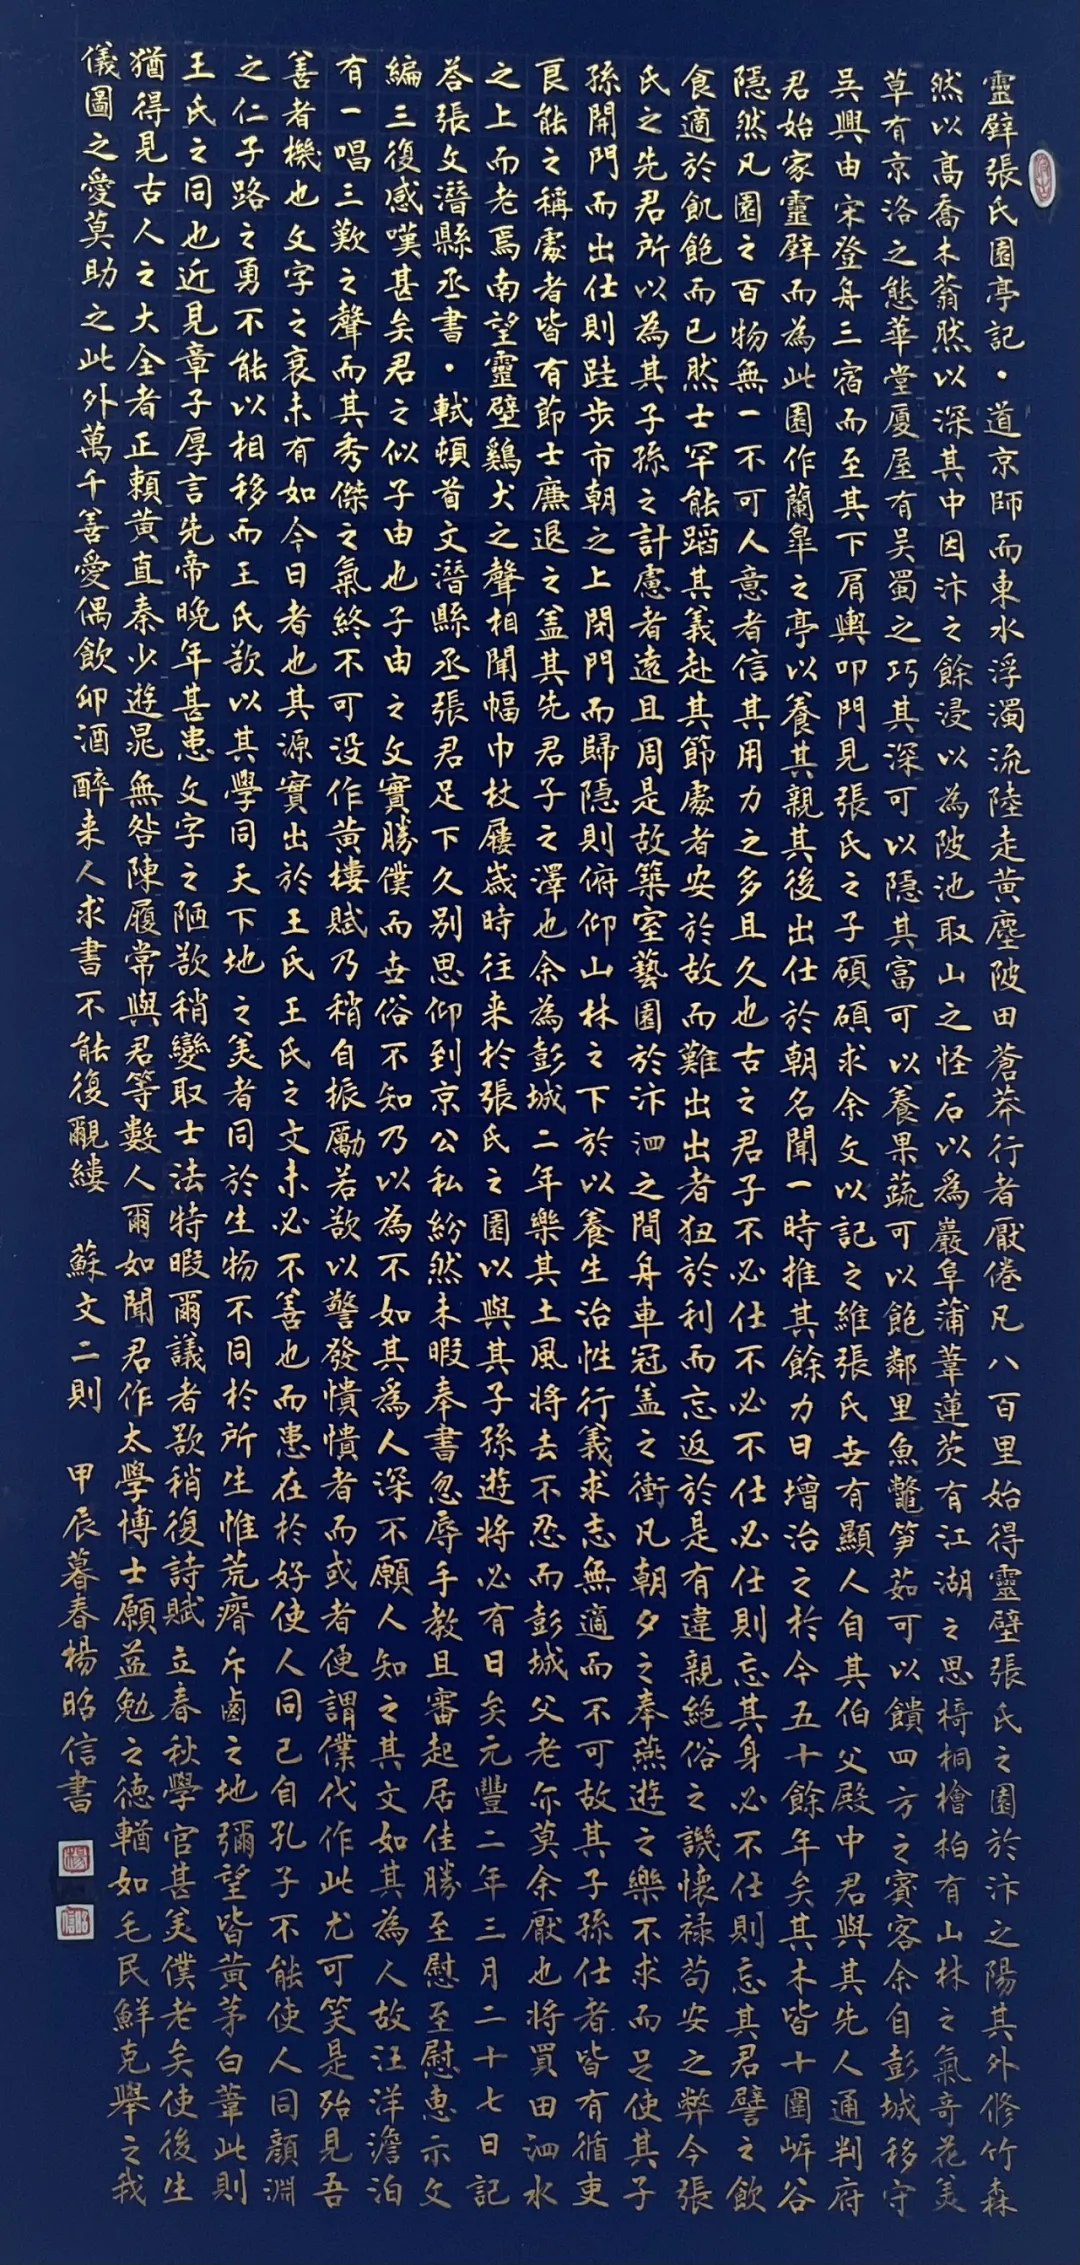 靈壁張氏園亭記・道京師而東水浮濁流陸走黃塵陂田蒼莽行者厭倦凡八百里始得靈壁張氏之園於汴之陽其外修竹森
然以高喬木蓊然以深其中因汴之餘浸以為陂池取山之怪石以為巖阜蒲葦蓮茨有江湖之思椅桐檜柏有山林之氣奇花美
草有京洛之態華堂廈屋有吳蜀之巧其深可以隱其富可以養果蔬可以飽鄰里魚鼈筍茹可以饋四方之賓客余自彭城移守
吳興由宋登舟三宿而至其下肩輿叩門見張氏之子碩碩求余文以記之維張氏世有顯人自其伯父殿中君與其先人通判府
君始家靈壁而為此園作蘭皋之亭以養其親其後出仕於朝名聞一時推其餘力日增治之於今五十餘年矣其木皆十圍岍谷
隱然凡園之百物無一不可人意者信其用力之多且久也古之君子不必仕不必不仕必仕則忘其身必不仕則忘其君譬之飲
食適於飢飽而已然士罕能蹈其義赴其節處者安於故而難出出者狃於利而忘返於是有違親絕俗之譏懷祿苟安之弊今張
氏之先君所以為其子孫之計慮者遠且周是故築室藝園於汴泗之間舟車冠蓋之衝凡朝夕之奉燕遊之樂不求而足使其子
孫開門而出仕則跬步市朝之上閉門而歸隱則俯仰山林之下於以養生治性行義求志無適而不可故其子孫仕者皆有循吏
良能之稱處者皆有節士廉退之蓋其先君子之澤也余為彭城二年樂其土風將去不忍而彭城父老亦莫余厭也將買田泗水
之上而老焉南望靈壁鷄犬之聲相聞幅巾杖屨歲時往来於張氏之園以與其子孫遊將必有日矣元豐二年三月二十七日記
荅張文潛縣丞書・軾頓首文潛縣丞張君足下久別思仰到京公私紛然未暇奉書忽辱手教且審起居佳勝至慰至慰惠示文
編三復感嘆甚矣君之似子由也子由之文實勝僕而世俗不知乃以為不如其為人深不願人知之其文如其為人故汪洋澹泊
有一唱三歎之聲而其秀傑之氣終不可没作黃樓賦乃稍自振勵若欲以警發憒憒者而或者便謂僕代作此尤可笑是殆見吾
善者機也文字之衰未有如今日者也其源實出於王氏王氏之文未必不善也而患在於好使人同己自孔子不能使人同顏淵
之仁子路之勇不能以相移而王氏欲以其學同天下地之美者同於生物不同於所生惟荒瘠斥鹵之地彌望皆黃茅白葦此則
王氏之同也近見章子厚言先帝晚年甚患文字之陋欲稍變取士法特暇爾議者欲稍復詩賦立春秋學官甚美僕老矣使後生
猶得見古人之大全者正賴黃直秦少遊晁無咎陳履常與君等數人爾如聞君作太學博士願益勉之德輶如毛民鮮克舉之我
儀圖之愛莫助之此外萬千善愛偶飲卯酒醉来人求書不能復覼縷 蘇文二則 甲辰暮春楊昭信書